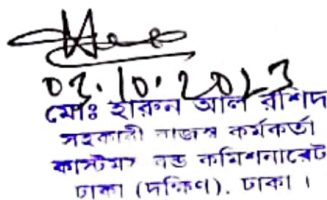 03.10.2023
মোঃ হারুন আল রশিদ
সহকারী রাজস্ব কর্মকর্তা
কাস্টমস বন্ড কমিশনারেট
ঢাকা (দক্ষিণ), ঢাকা।